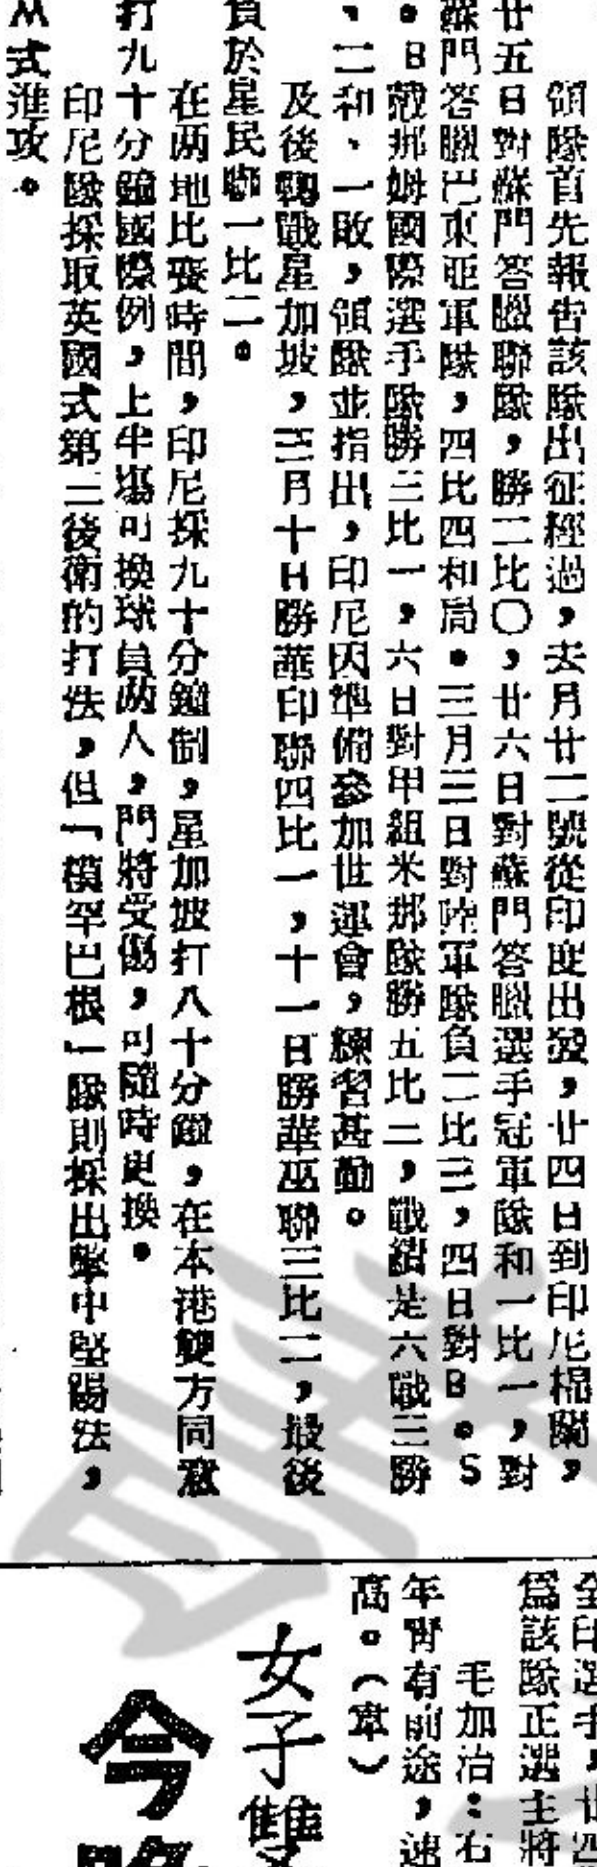 領隊首先報告該隊出征經過，去月廿二號從印度出發，廿四日到印尼棉蘭，
廿五日對蘇門答臘聯隊，勝二比〇，廿六日對蘇門答臘選手冠軍隊和一比一，對
蘇門答臘巴東亞軍隊，四比四和局。三月三日對陸軍隊負二比三，四日對B。S
。B戟挪姆國際選手隊勝三比一，六日對甲組米挪隊勝五比二，戰績是六戰三勝
、二和、一敗，領隊並指出，印尼因準備參加世運會，練習甚勤。
及後轉戰星加坡，三月十日勝華印聯四比一，十一日勝華巫聯三比二，最後
負於星民聯一比二。
在两地比賽時間，印尼採九十分鐘制，星加坡打八十分鐘，在本港雙方同意
打九十分鐘國際例，上半塲可換球員两人，門將受傷，可隨時更換。
印尼隊採取英國式第三後衛的打法，但「模罕巴根」隊則採出擊中堅踢法，
M式進攻。
全印選手，廿四
爲該隊正選主將
毛加治：右
年靑有前途，速
高。（韋）
女子雙
今